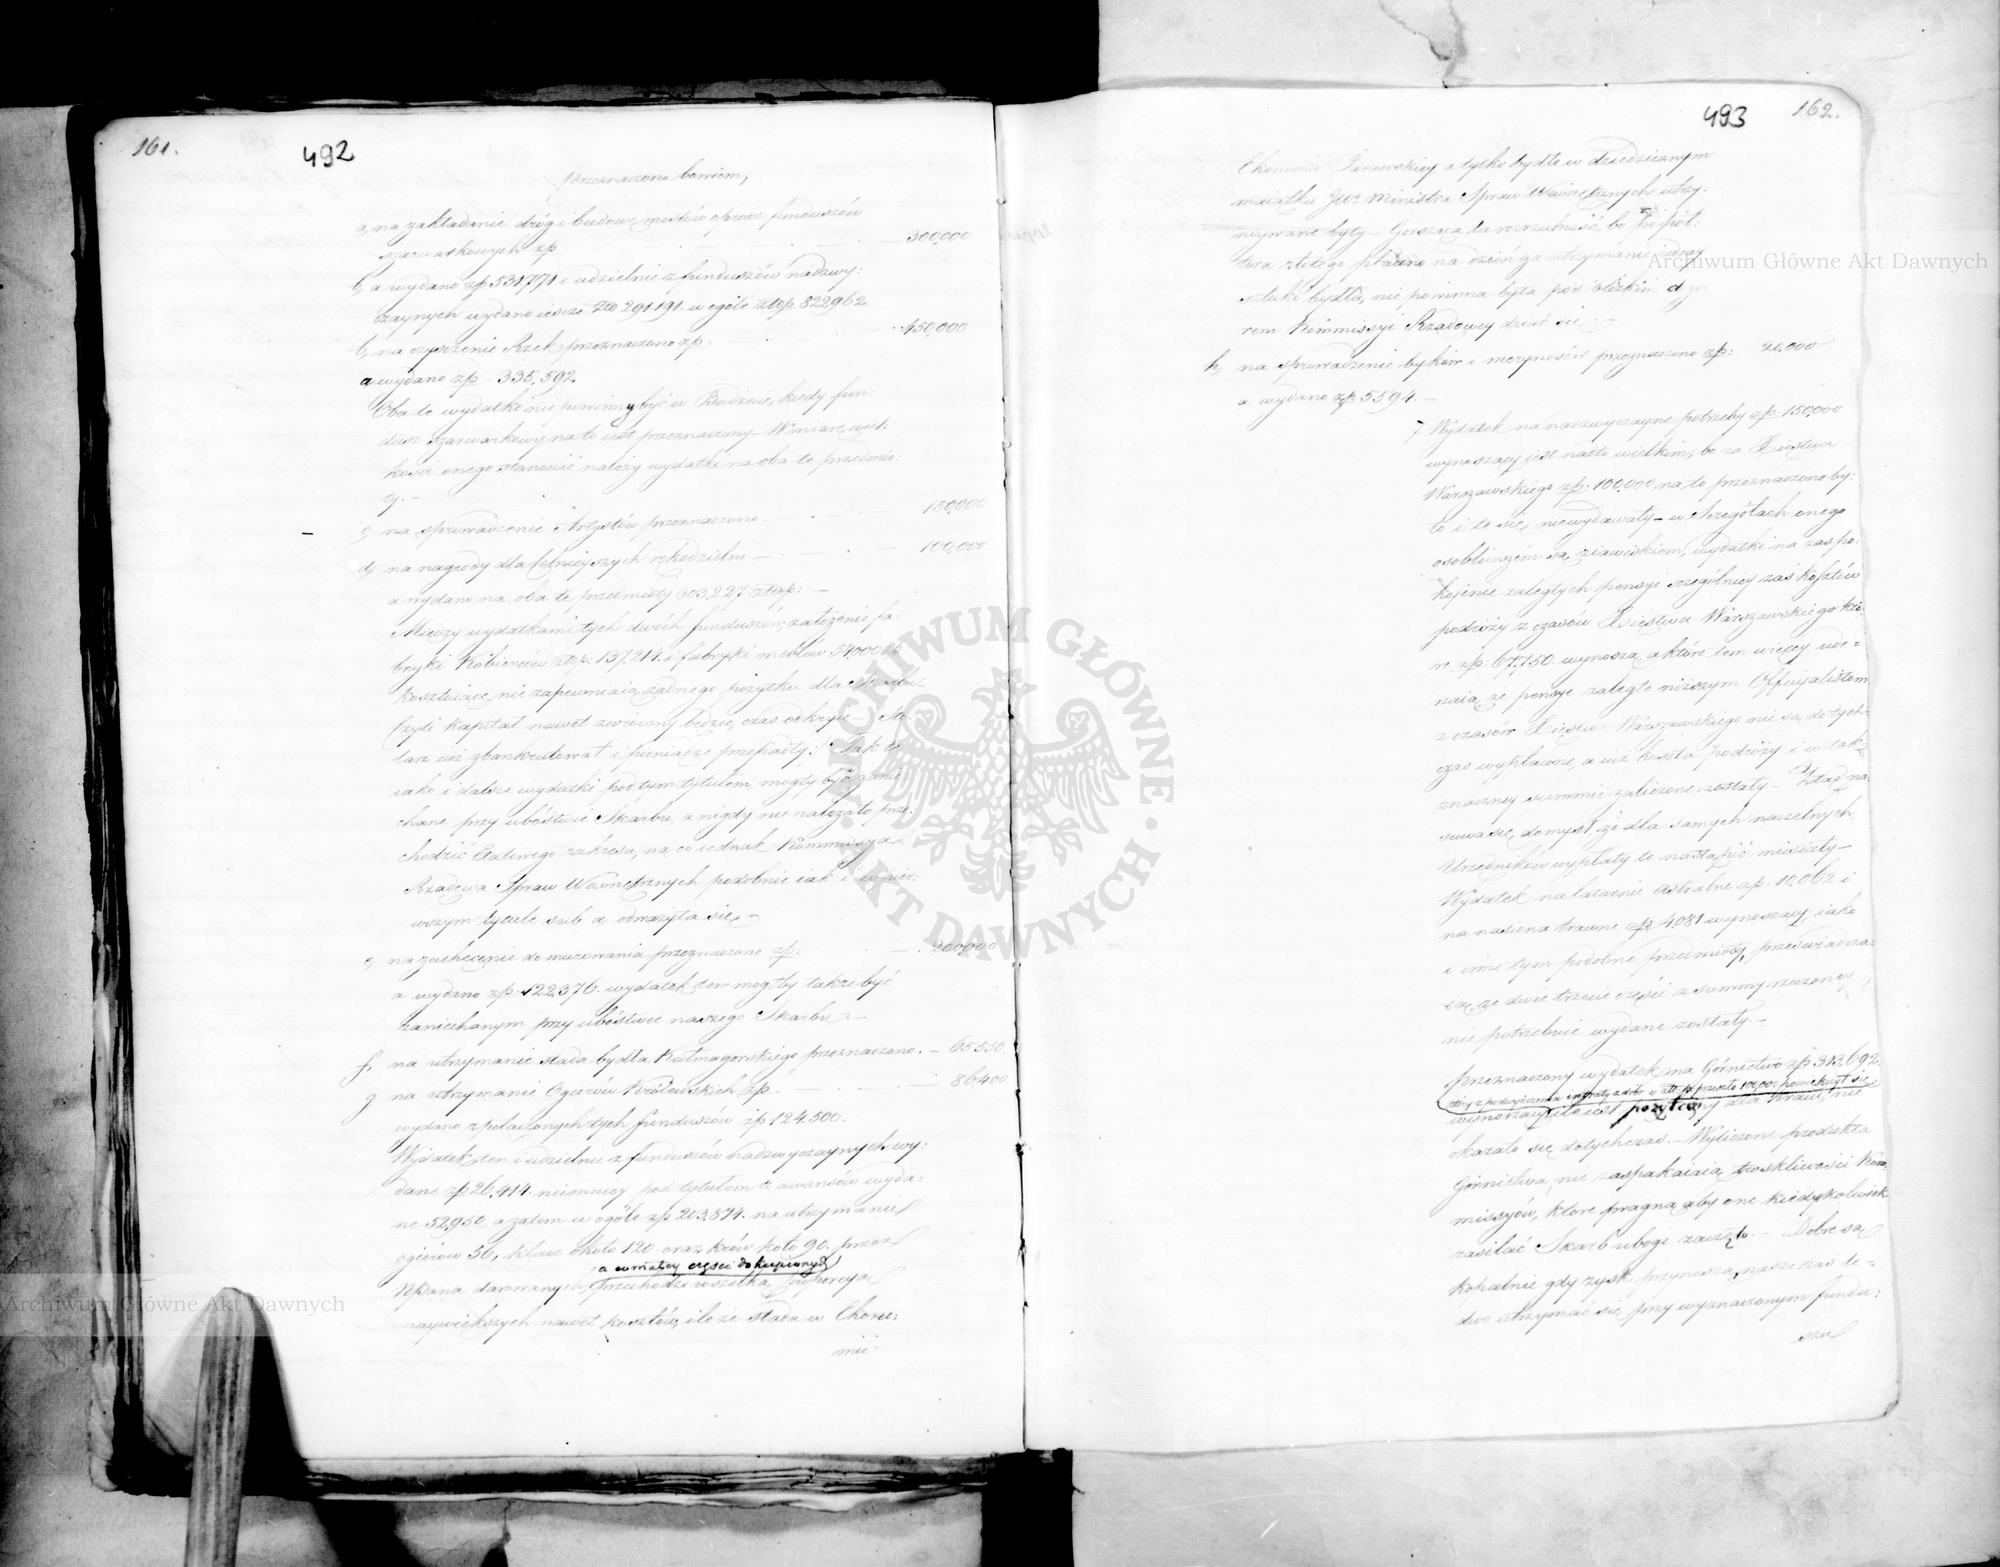 161.
492
przeznaczono bowiem,
a, na zakładanie dróg i budowę mostów oprócz funduszów
szarwarkowych zp. 300,000
a wydano zp 531,771 i udzielnie z funduszów nadzwy:
czaynych wydano ieszcze złło 291,191. w ogóle złop. 822962.
b, na czyszczenie Rzek przeznaczono zp. 450,000
a wydano zp 335,592.
Oba te wydatki nie powinny być w Budżecie, kiedy fun-
dusz szarwarkowy na to iest przeznaczony. W miarę wiel:
kości onego stanowić należy wydatki na oba te przedmio-
ty. –
c, na sprowadzenie Artystów przeznaczono 150,000
d, na nagrody dla celnieyszych rękodzielni – 100,000
a wydano na oba te przedmioty 303,227 złop: –
Między wydatkami tych dwóch funduszów, założenie fa:
bryki Kobierców złop: 137,214. i fabryki meblów 54,000
kosztuiące, nie zapewniaią żadnego pożytku dla Skarbu
Czyli kapitał nawet zwrócony będzie, czas odkryie – Sto:
larz iuż zbankrutował i pieniądze przepadły: Tak to
iako i dalsze wydatki pod tym tytułem, mogły być zanie
chane przy ubóstwie Skarbu, a nigdy nie należało prze:
chodzić Etatowego zakresu, na co iednak Kommissya
Rządowa Spraw Wewnętrznych podobnie iak i w pier:
wszym tytule sub a odważyła się –
e, na zachęcenie do murowania przeznaczono zp: 200,000
a wydano zp. 122,376. wydatek ten mógłby także być
zaniechanym przy ubóstwie naszego Skarbu –
f, na utrzymanie stada bydła Kałmagorskiego przeznaczono. – 65550.
g na utrzymanie Ogierów Królewskich zp. 86400
wydano z połączonych tych funduszów zp 124.500.
Wydatek ten i udzielnie z funduszów nadzwyczaynych wy:
dane zp 26,414. niemniey pod tytułem z awansów wyda-
ne 52,950. a zatem w ogóle zp 203,874. na utrzymanie
ogierów 56, klacz około 120 oraz krów koło 90. przez
a w małey części dokupionych
NPana darowanych, przechodzi wszelką proporcyą
naywiększych nawet kosztów, ile że stada w Ekono:
mii
493
162.
Ekonomii Janowskiey a tylko bydło w dziedzicznym
maiątku JW Ministra Spraw Wewnętrznych utrzy:
mywane były – Gorsząca ta rozrzutność, bo po pół:
tora złotego płacono na dzień za utrzymanie iedney
sztuki bydła, nie powinna była pod bliskim dozo
rem Kommissyi Rządowey dziać się –
h, na sprowadzenie byków i merynosów przeznaczono zp: 20,000
a wydano zp. 5594. –
7. Wydatek na nadzwyczayne potrzeby zp: 150,000
wynoszący iest nadto wielkim, bo za Xięstwa
Warszawskiego zp: 100,000 na to przeznaczono by:
ło i te się niewydawały – w Szczegółach onego
osobliwszém są ziawiskiem, wydatki na zaspo:
koienie zaległych pensyi szczególniey zaś kosztów
podróży z czasów Xięstwa Warszawskiego któ:
re zp: 67,750. wynoszą, a które tem więcey ude-
rzaią, że pensye zaległe niższym Officyalistom
z czasów Xięstwa Warszawskiego nie są dotych-
czas wypłacone, a iuż koszta podróży i w tak
znaczney summie zaliczone zostały – Ztąd na:
suwa się domysł, że dla samych naczelnych
Urzędników wypłaty te nastąpić musiały –
Wydatek na latarnie Astralne zp: 10,062 i
na nasiona trawne zp 4081 wynoszący, iako
i inne tym podobne przedmioty, przeświadcza:
ią, że dwie trzecie części z summy rzeczoney
nie potrzebnie wydane zostały. –
Przeznaczony wydatek na Górnictwo zp 313,692.
który z podwyższenia intraty z dóbr i złło zp przeszło 100,000 powiększył się
wynoszący ile iest pożyteczny dla Kraiu, nie
okazało się dotychczas. – Wyliczone produkta
Górnictwa, nie zaspakaiaią troskliwości Kom:
missyów, które pragną aby one kiedykolwiek
zasilać Skarb ubogi zaczęło. – Dobre są
kopalnie gdy zysk przynoszą, nasze zaś le-
dwo utrzymać się przy wyznaczonym fundu:
szu
Archiwum Główne Akt Dawnych
Archiwum Główne Akt Dawnych
ARCHIWUM GŁÓWNE · AKT DAWNYCH ·